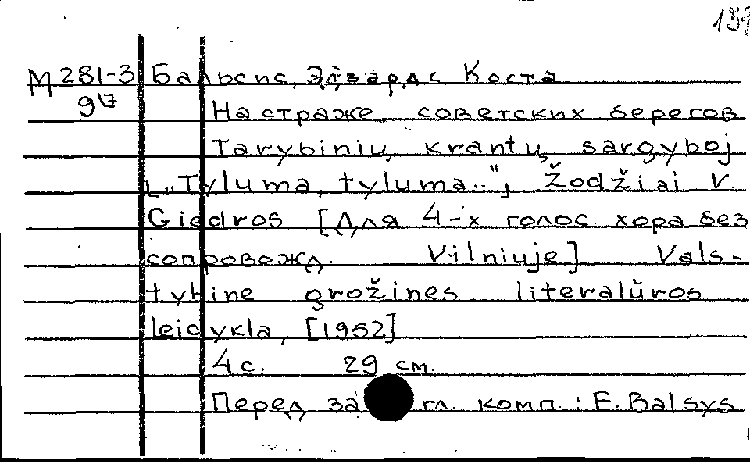 М 281-3 Бальсис, Эдвардс Коста
9
На страже советских берегов
Tarybinių krantų sargyboj
[„Tyluma, tyluma..", Žodžiai V
Giedros [Для 4-х голос хора без
сопровожд. Vilniuje] Vals-
tybine grožines literatūros
leidykla, [1952]
4 с. 29 см.
Перед за гл. комп.: E. Balsys